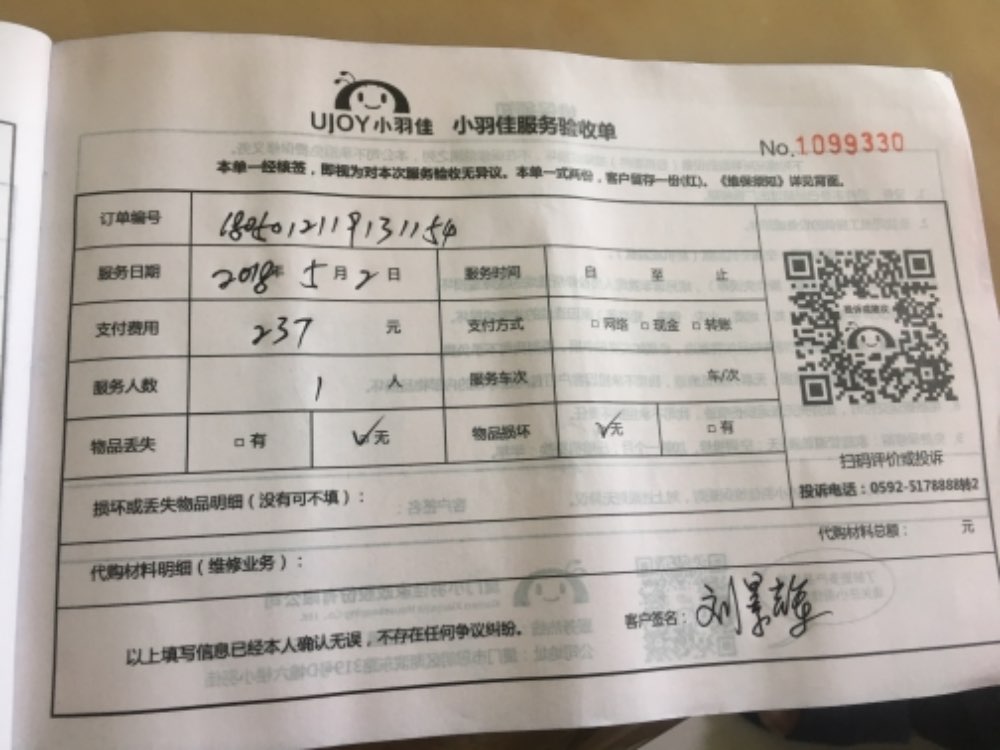 UJOY小羽佳 小羽佳服务验收单
No.1099330
本单一经核签，即视为对本次服务验收无异议。本单一式两份，客户留存一份(红)。《维保须知》详见背面。
订单编号 1805012119131154
服务日期 2018年 5月2日 服务时间 自 至 止
支付费用 237 元 支付方式 □网络 □现金 □转账
服务人数 1 人 服务车次 车/次
物品丢失 □有 ☑无 物品损坏 ☑无 □有
扫码评价或投诉
投诉电话：0592-5178888转2
损坏或丢失物品明细（没有可不填）：
代购材料总额： 元
代购材料明细（维修业务）：
客户签名：刘景雄
以上填写信息已经本人确认无误，不存在任何争议纠纷。